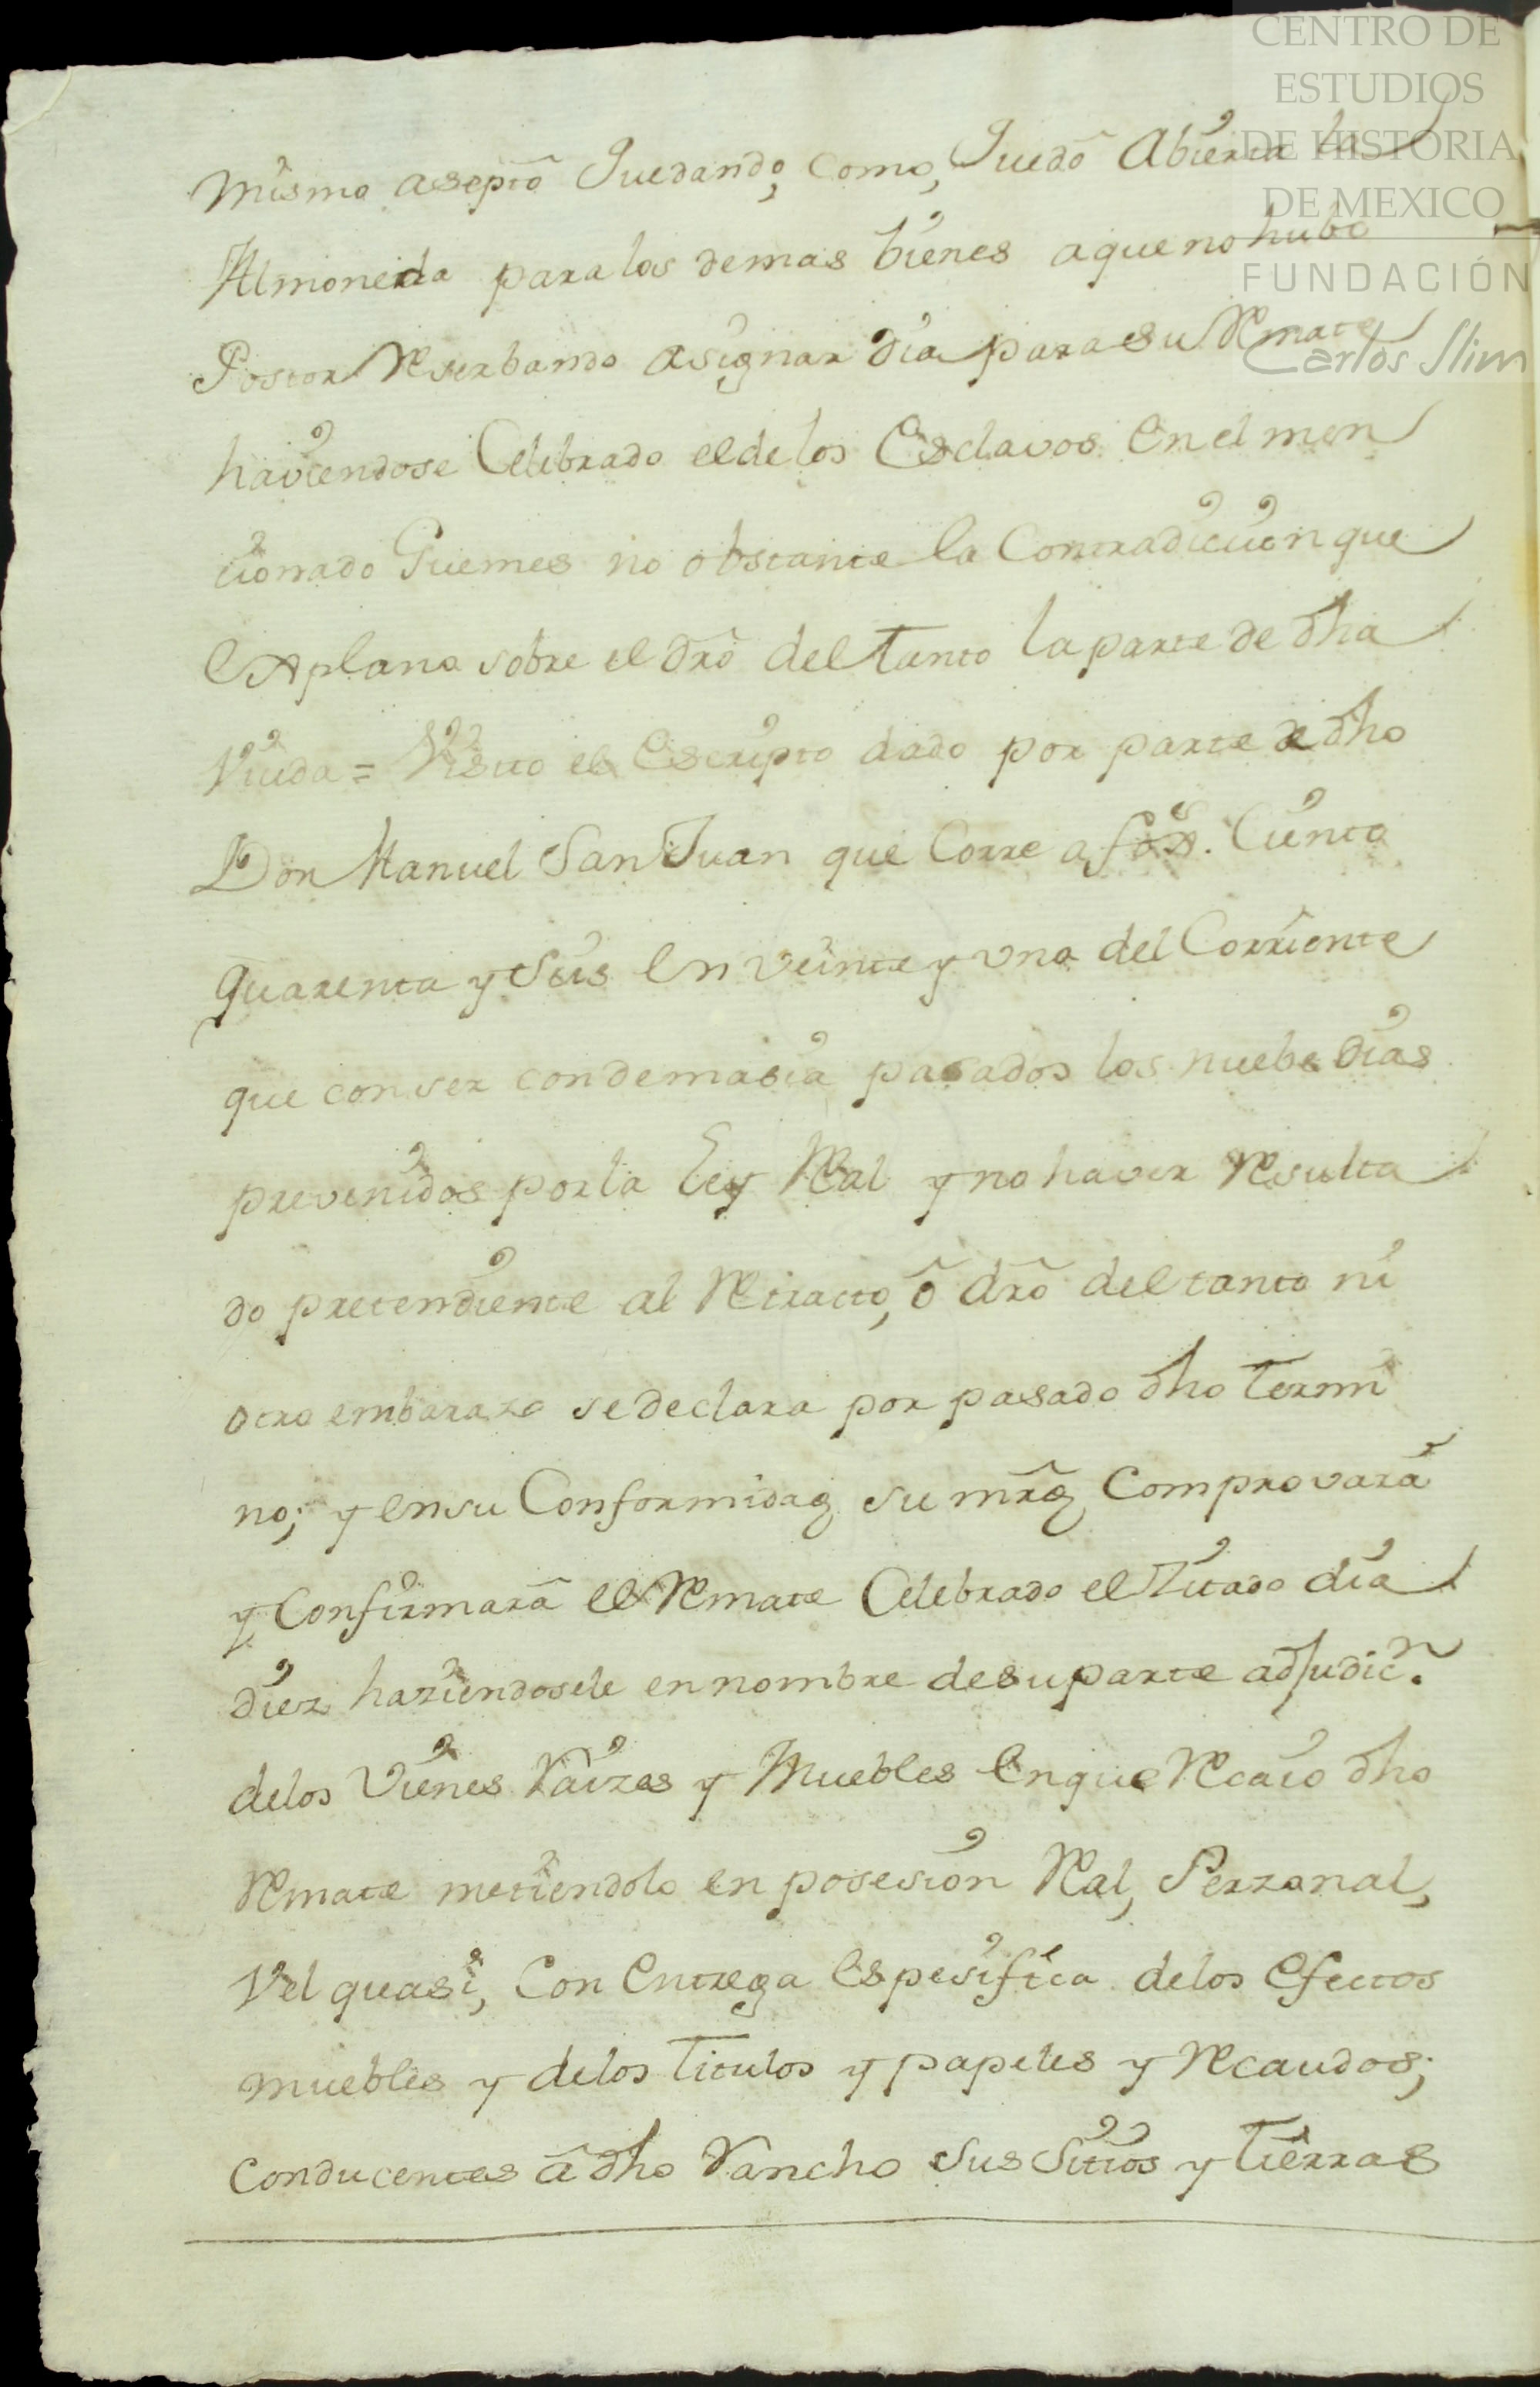 CENTRO DE
ESTUDIOS
DE HISTORIA
DE MEXICO
FUNDACIÓN
Carlos Slim
mismo aseptó Quedando, como, Quedó Abierta la
Almoneda para los demas bienes a que no hubo
Postor Reserbando asignar dia para su Remate
haviendose Celebrado el de los Esclavos en el men
cionado Guemes no obstante la Contradiccion que
Explana sobre el dr̃o del tanto la parte de dha
Viuda = Visto el Escripto dado por parte de dho
Don Manuel San Juan que Corre a fox̃s. Ciento
quarenta y seis en veinte y uno del Corriente
que con ser con demasia pasados los nuebe dias
prevenidos por la Ley Real y no haver Resulta
do pretendiente al Retracto, ó dr̃o del tanto ni
otro embarazo se declara por pasado dho termi
no; y en su Conformidad su mr̃d Comprovará
y Confirmará el Remate Celebrado el Zitado dia
diez haziendosele en nombre de su parte adjudicn.
de los Vienes Raizes y Muebles en que Recaio dho
Remate metiendolo en posesion Real, Perzonal,
Vel quasi, con entrega espesifica de los efectos
muebles y de los titulos y papeles y Recaudos;
conducentes á dho Rancho sus Sitios y tierras